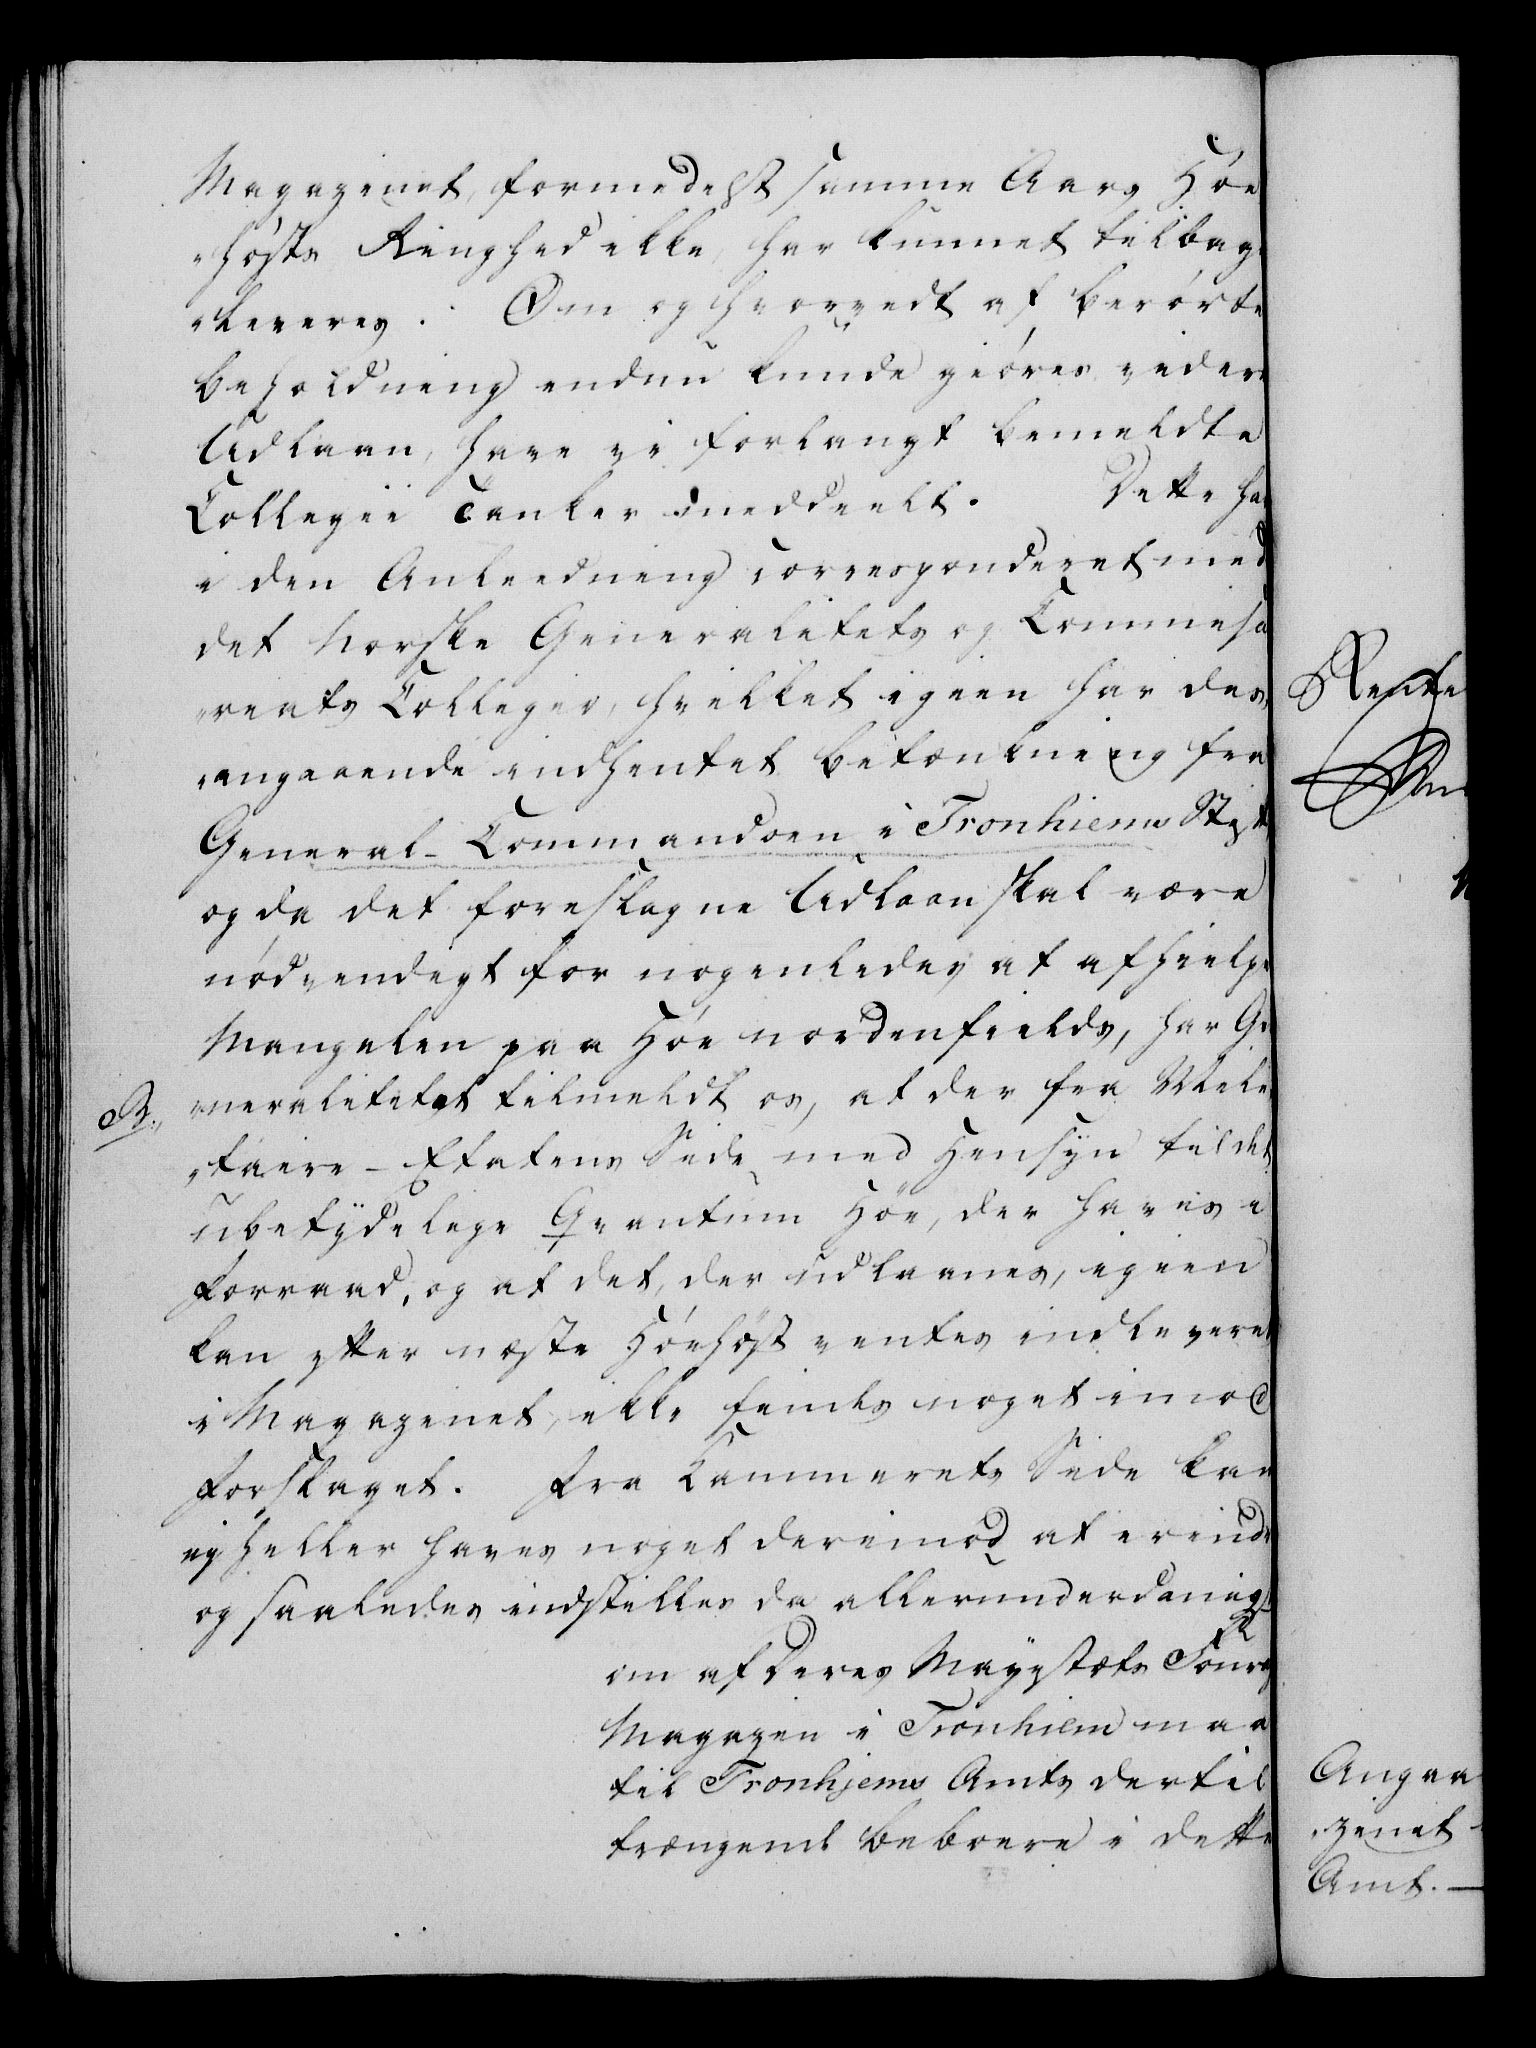 Magazinet, formedelst samme Aars Høe
høsts Ringhed ikke, har kunnet tilbage
leveres. Om og hvorvidt af berørte
beholdning endnu kunde giøres videre
Udlaan, have vi forlangt bemeldte
Collegii Tanker meddeelt. Dette har
i den Anleedning corresponderet med
det Norske Generalitets og Commissa
riats Collegio, hvilket igien har des
angaaende indhentet betænkning fra
General-Commandoen i Tronhiems Stift
og da det foreslagne Udlaan skal være
nødvendigt for nogenledes at afhielpe
Mangelen paa Høe nordenfields, har Ge
B., neralitetet tilmeldt os, at der fra Mili
taire-Etatens Side, med Hensyn til det
ubetydelige Qvantum Høe, der haves i
Forraad, og at det, der udlaanes, igien
kan efter næste Høehøst ventes indleveret
i Magazinet, ikke findes noget imod
Forslaget. Fra Kammerets Side kan
ej heller haves noget derimod at erindr
og saaledes indstilles da allerunderdanigst
om af Deres Mayestæts Foura
Magazin i Tronhiem maa
til Tronhjems Amts dertil
trængende beboere i dette
Rente
Angaa
zinet
Amt. —